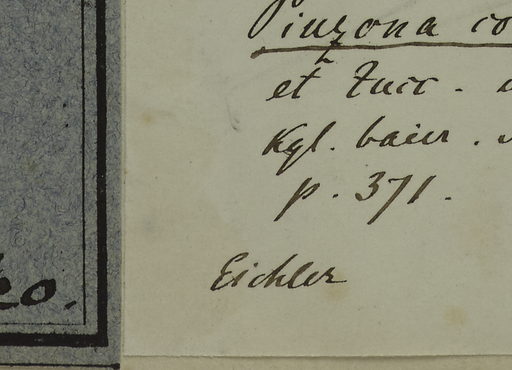 Pinzona co
et Zucc.
Kgl. baier.
p. 371.
Eichler